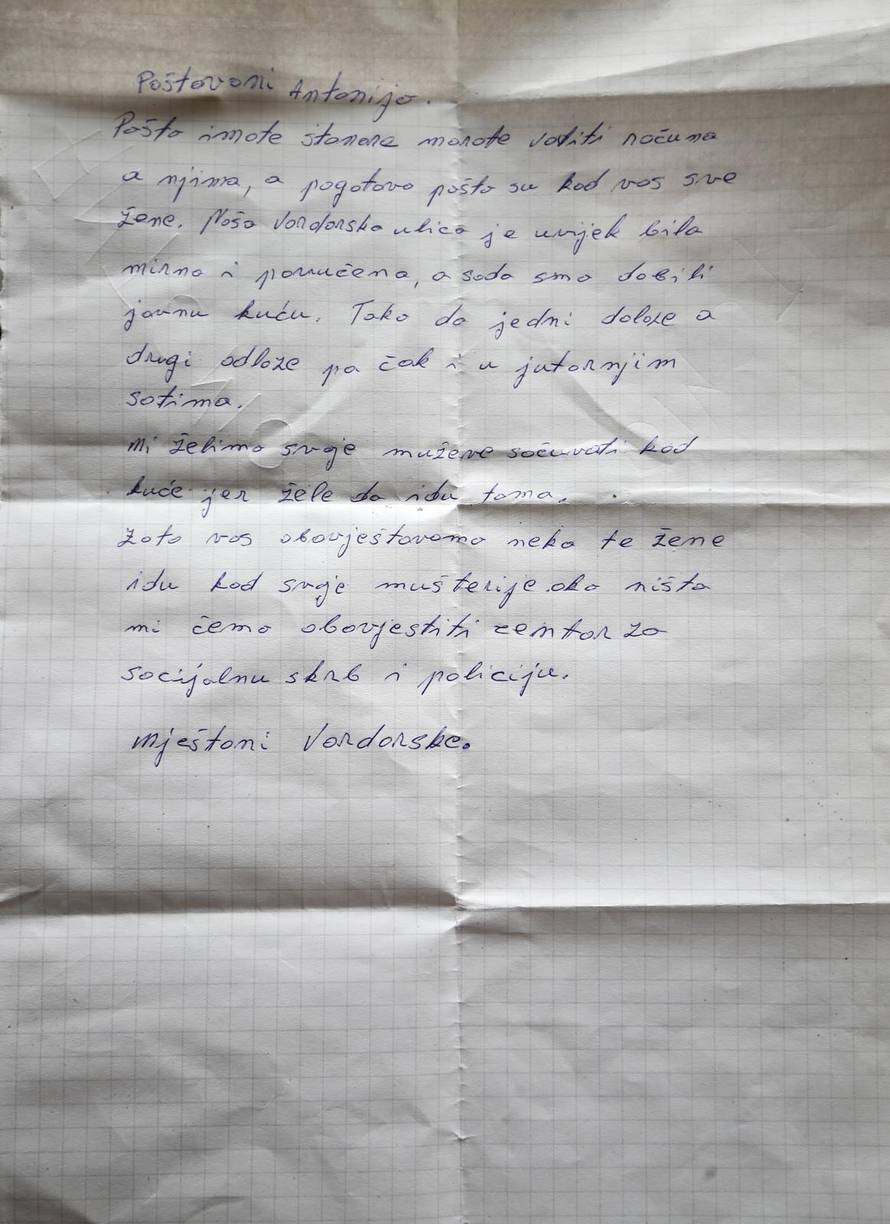 Poštovani Antonijo.
Pošto imate stanare morate voditi računa
a njima, a pogotovo pošto su kod vas sve
žene. Naša Vardarska ulica je uvijek bila
mirna i povučena, a sada smo dobili
javnu kuću. Tako da jedni dolaze a
drugi odlaze pa čak i u jutarnjim
satima.
Mi želimo svoje muževe sačuvati kod
kuće jer žele da idu tama.
Zato vas obavještavamo neka te žene
idu kod svoje mušterije. ako ništa
mi ćemo obavjestiti centar za
socijalnu skrb i policiju.
Mještani Vardarske.